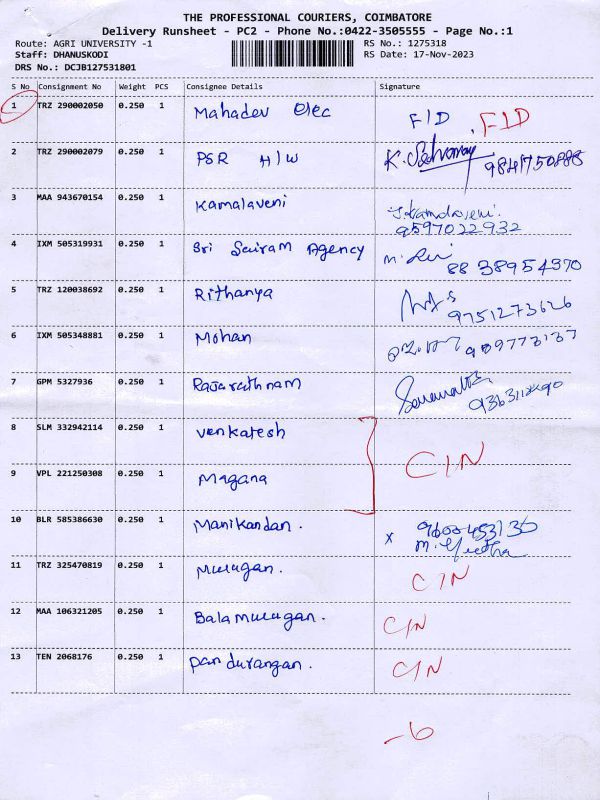 THE PROFESSIONAL COURIERS, COIMBATORE
Delivery Runsheet - PC2 - Phone No.:0422-3505555 - Page No.:1
Route: AGRI UNIVERSITY -1 RS No.: 1275318
Staff: DHANUSKODI RS Date: 17-Nov-2023
DRS No.: DCJB127531801
S No Consignment No Weight PCS Consignee Details Signature
1 TRZ 290002050 0.250 1 Mahadev Elec F/D F1D
2 TRZ 290002079 0.250 1 PSR H/W K.
3 MAA 943670154 0.250 1 Kamalaveni
9597022932
4 IXM 505319931 0.250 1 Sri Sairam Agency
88 38954370
5 TRZ 120038692 0.250 1 Rithanya
9751273626
6 IXM 505348881 0.250 1 Mohan
7 GPM 5327936 0.250 1 Rajarathnam
8 SLM 332942114 0.250 1 Venkatesh
C/N
9 VPL 221250308 0.250 1 Magana
10 BLR 585386630 0.250 1 Manikandan. x
M. Geetha
11 TRZ 325470819 0.250 1 Murugan. C/N
12 MAA 106321205 0.250 1 Balamurugan. C/N
13 TEN 2068176 0.250 1 Pandurangan. C/N
-6